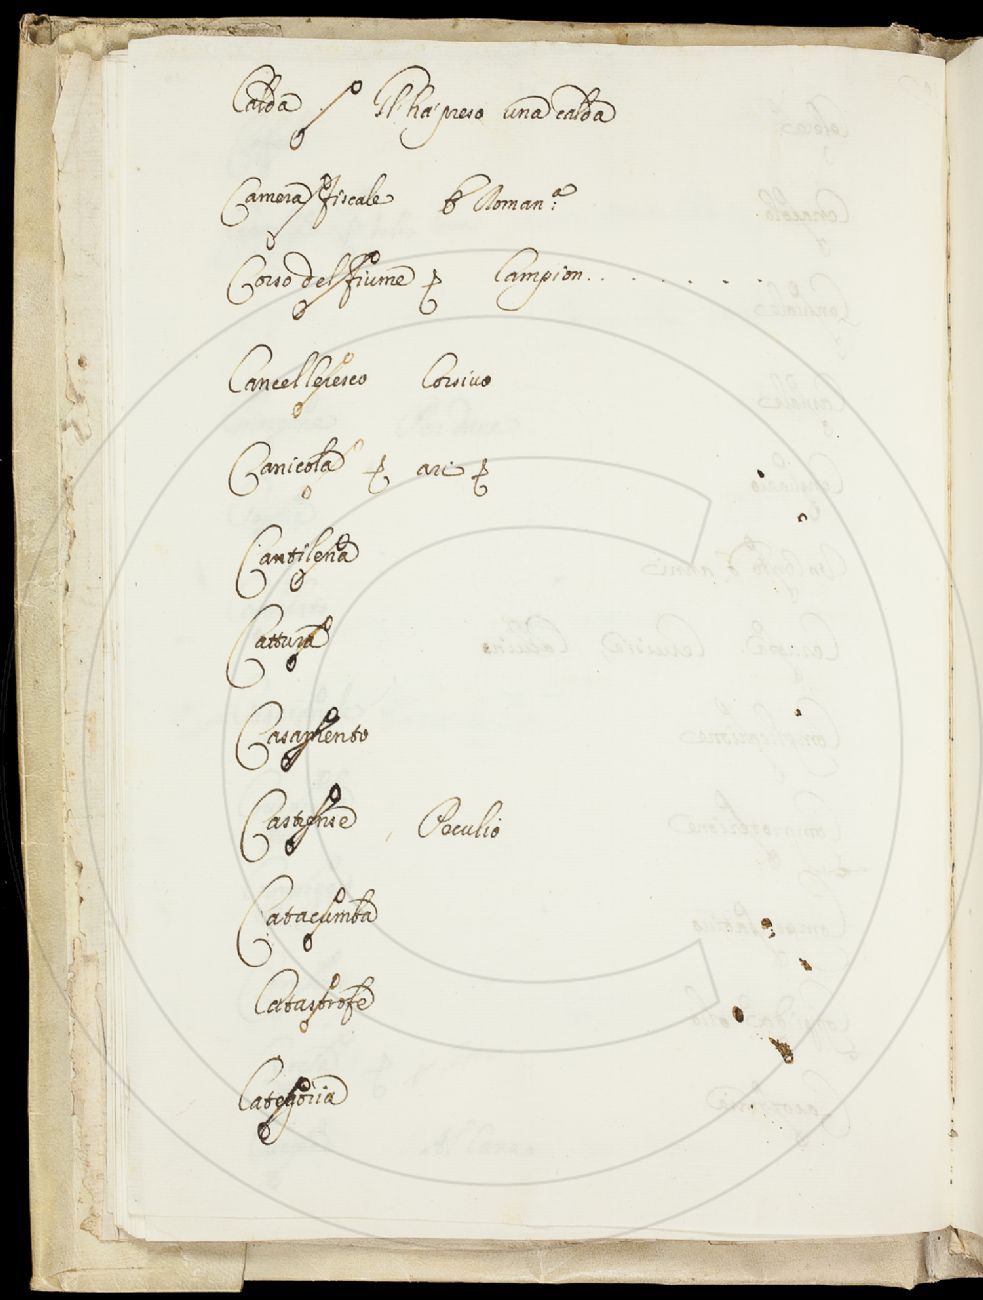 Calda Il ha preso una calda
Camera fiscale Roman.ª
Corso del fiume p Campion. . . . . . .
Cancelleresco Corsivo
Canicola p ari p
Cantilena
Cattura
Casamento
Peculio
Catacumba
Catastrofe
Categoria